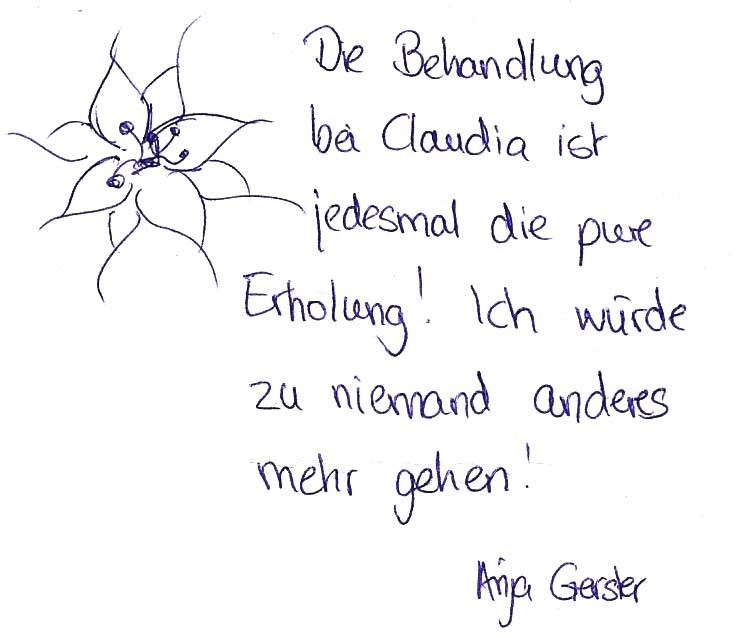 Die Behandlung
bei Claudia ist
jedesmal die pure
Erholung! Ich würde
zu niemand anderes
mehr gehen!
Anja Gerster